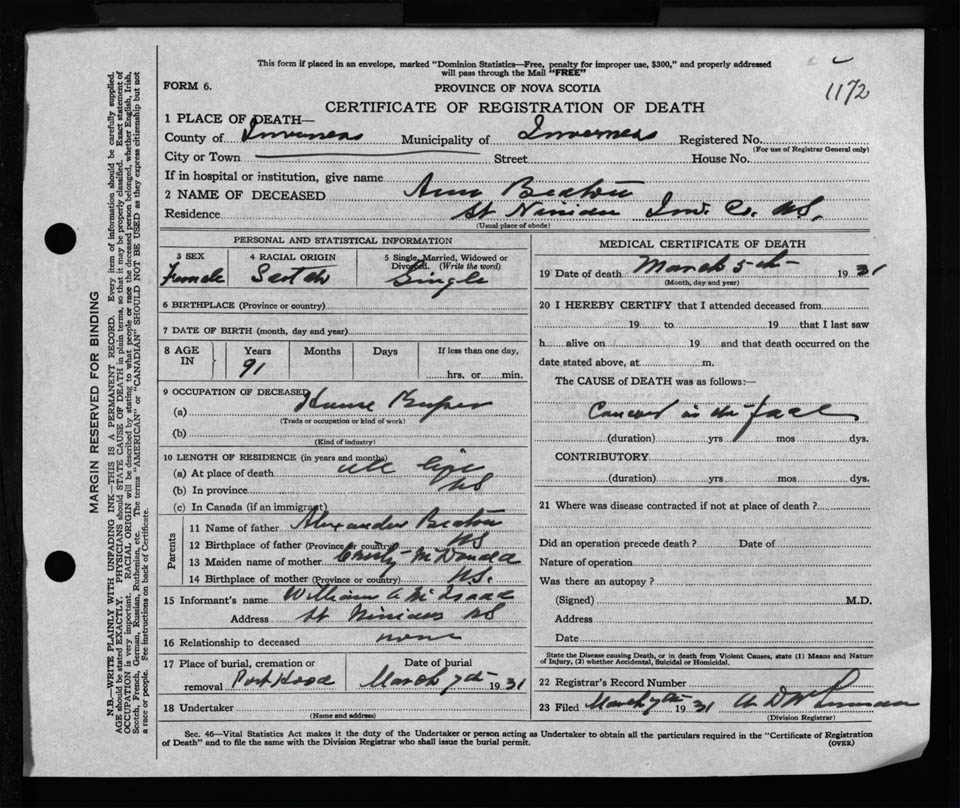 This form if placed in an envelope, marked "Dominion Statistics—Free, penalty for improper use, $300," and properly addressed
will pass through the Mail "FREE"
1172
FORM 6.
PROVINCE OF NOVA SCOTIA
CERTIFICATE OF REGISTRATION OF DEATH
1 PLACE OF DEATH—
County of Inverness Municipality of Inverness Registered No.
(For use of Registrar General only)
City or Town Street House No.
If in hospital or institution, give name
2 NAME OF DECEASED Ann Beaton
Residence St Ninian Inv. Co. NS.
(Usual place of abode)
PERSONAL AND STATISTICAL INFORMATION
3 SEX 4 RACIAL ORIGIN 5 Single, Married, Widowed or
Divorced. (Write the word)
Female Scotch Single
6 BIRTHPLACE (Province or country)
7 DATE OF BIRTH (month, day and year)
8 AGE IN Years Months Days If less than one day,
91 hrs. or min.
9 OCCUPATION OF DECEASED
(a) House Keeper
(Trade or occupation or kind of work)
(b)
(Kind of industry)
10 LENGTH OF RESIDENCE (in years and months)
(a) At place of death all life
(b) In province NS
(c) In Canada (if an immigrant)
Parents
11 Name of father Alexander Beaton
12 Birthplace of father (Province or country) NS
13 Maiden name of mother McDonald
14 Birthplace of mother (Province or country) NS.
15 Informant's name William A McIsaac
Address St Ninians NS
16 Relationship to deceased none
17 Place of burial, cremation or Date of burial
removal Port Hood March 7th 1931
18 Undertaker
(Name and address)
MEDICAL CERTIFICATE OF DEATH
19 Date of death March 5th 1931
(Month, day and year)
20 I HEREBY CERTIFY that I attended deceased from
19 to 19 that I last saw
h alive on 19 and that death occurred on the
date stated above, at m.
The CAUSE of DEATH was as follows:—
Cancer in the face
(duration) yrs mos dys.
CONTRIBUTORY
(duration) yrs mos dys.
21 Where was disease contracted if not at place of death?
Did an operation precede death? Date of
Nature of operation
Was there an autopsy?
(Signed) M.D.
Address
Date
State the Disease causing Death, or in death from Violent Causes, state (1) Means and Nature
of Injury, (2) whether Accidental, Suicidal or Homicidal.
22 Registrar's Record Number
23 Filed March 7th 1931 A D
(Division Registrar)
Sec. 46—Vital Statistics Act makes it the duty of the Undertaker or person acting as Undertaker to obtain all the particulars required in the "Certificate of Registration
of Death" and to file the same with the Division Registrar who shall issue the burial permit.
(OVER)
MARGIN RESERVED FOR BINDING
N.B.—WRITE PLAINLY WITH UNFADING INK—THIS IS A PERMANENT RECORD. Every item of information should be carefully supplied.
AGE should be stated EXACTLY. PHYSICIANS should STATE CAUSE OF DEATH in plain terms, so that it may be properly classified. Exact statement of
OCCUPATION is very important. RACIAL ORIGIN will be described by stating to what people or race the deceased person belonged, whether English, Irish,
Scotch, French, German, Russian, Ruthenian, etc. The terms "AMERICAN" or "CANADIAN" SHOULD NOT BE USED as they express citizenship but not
a race or people. See instructions on back of Certificate.